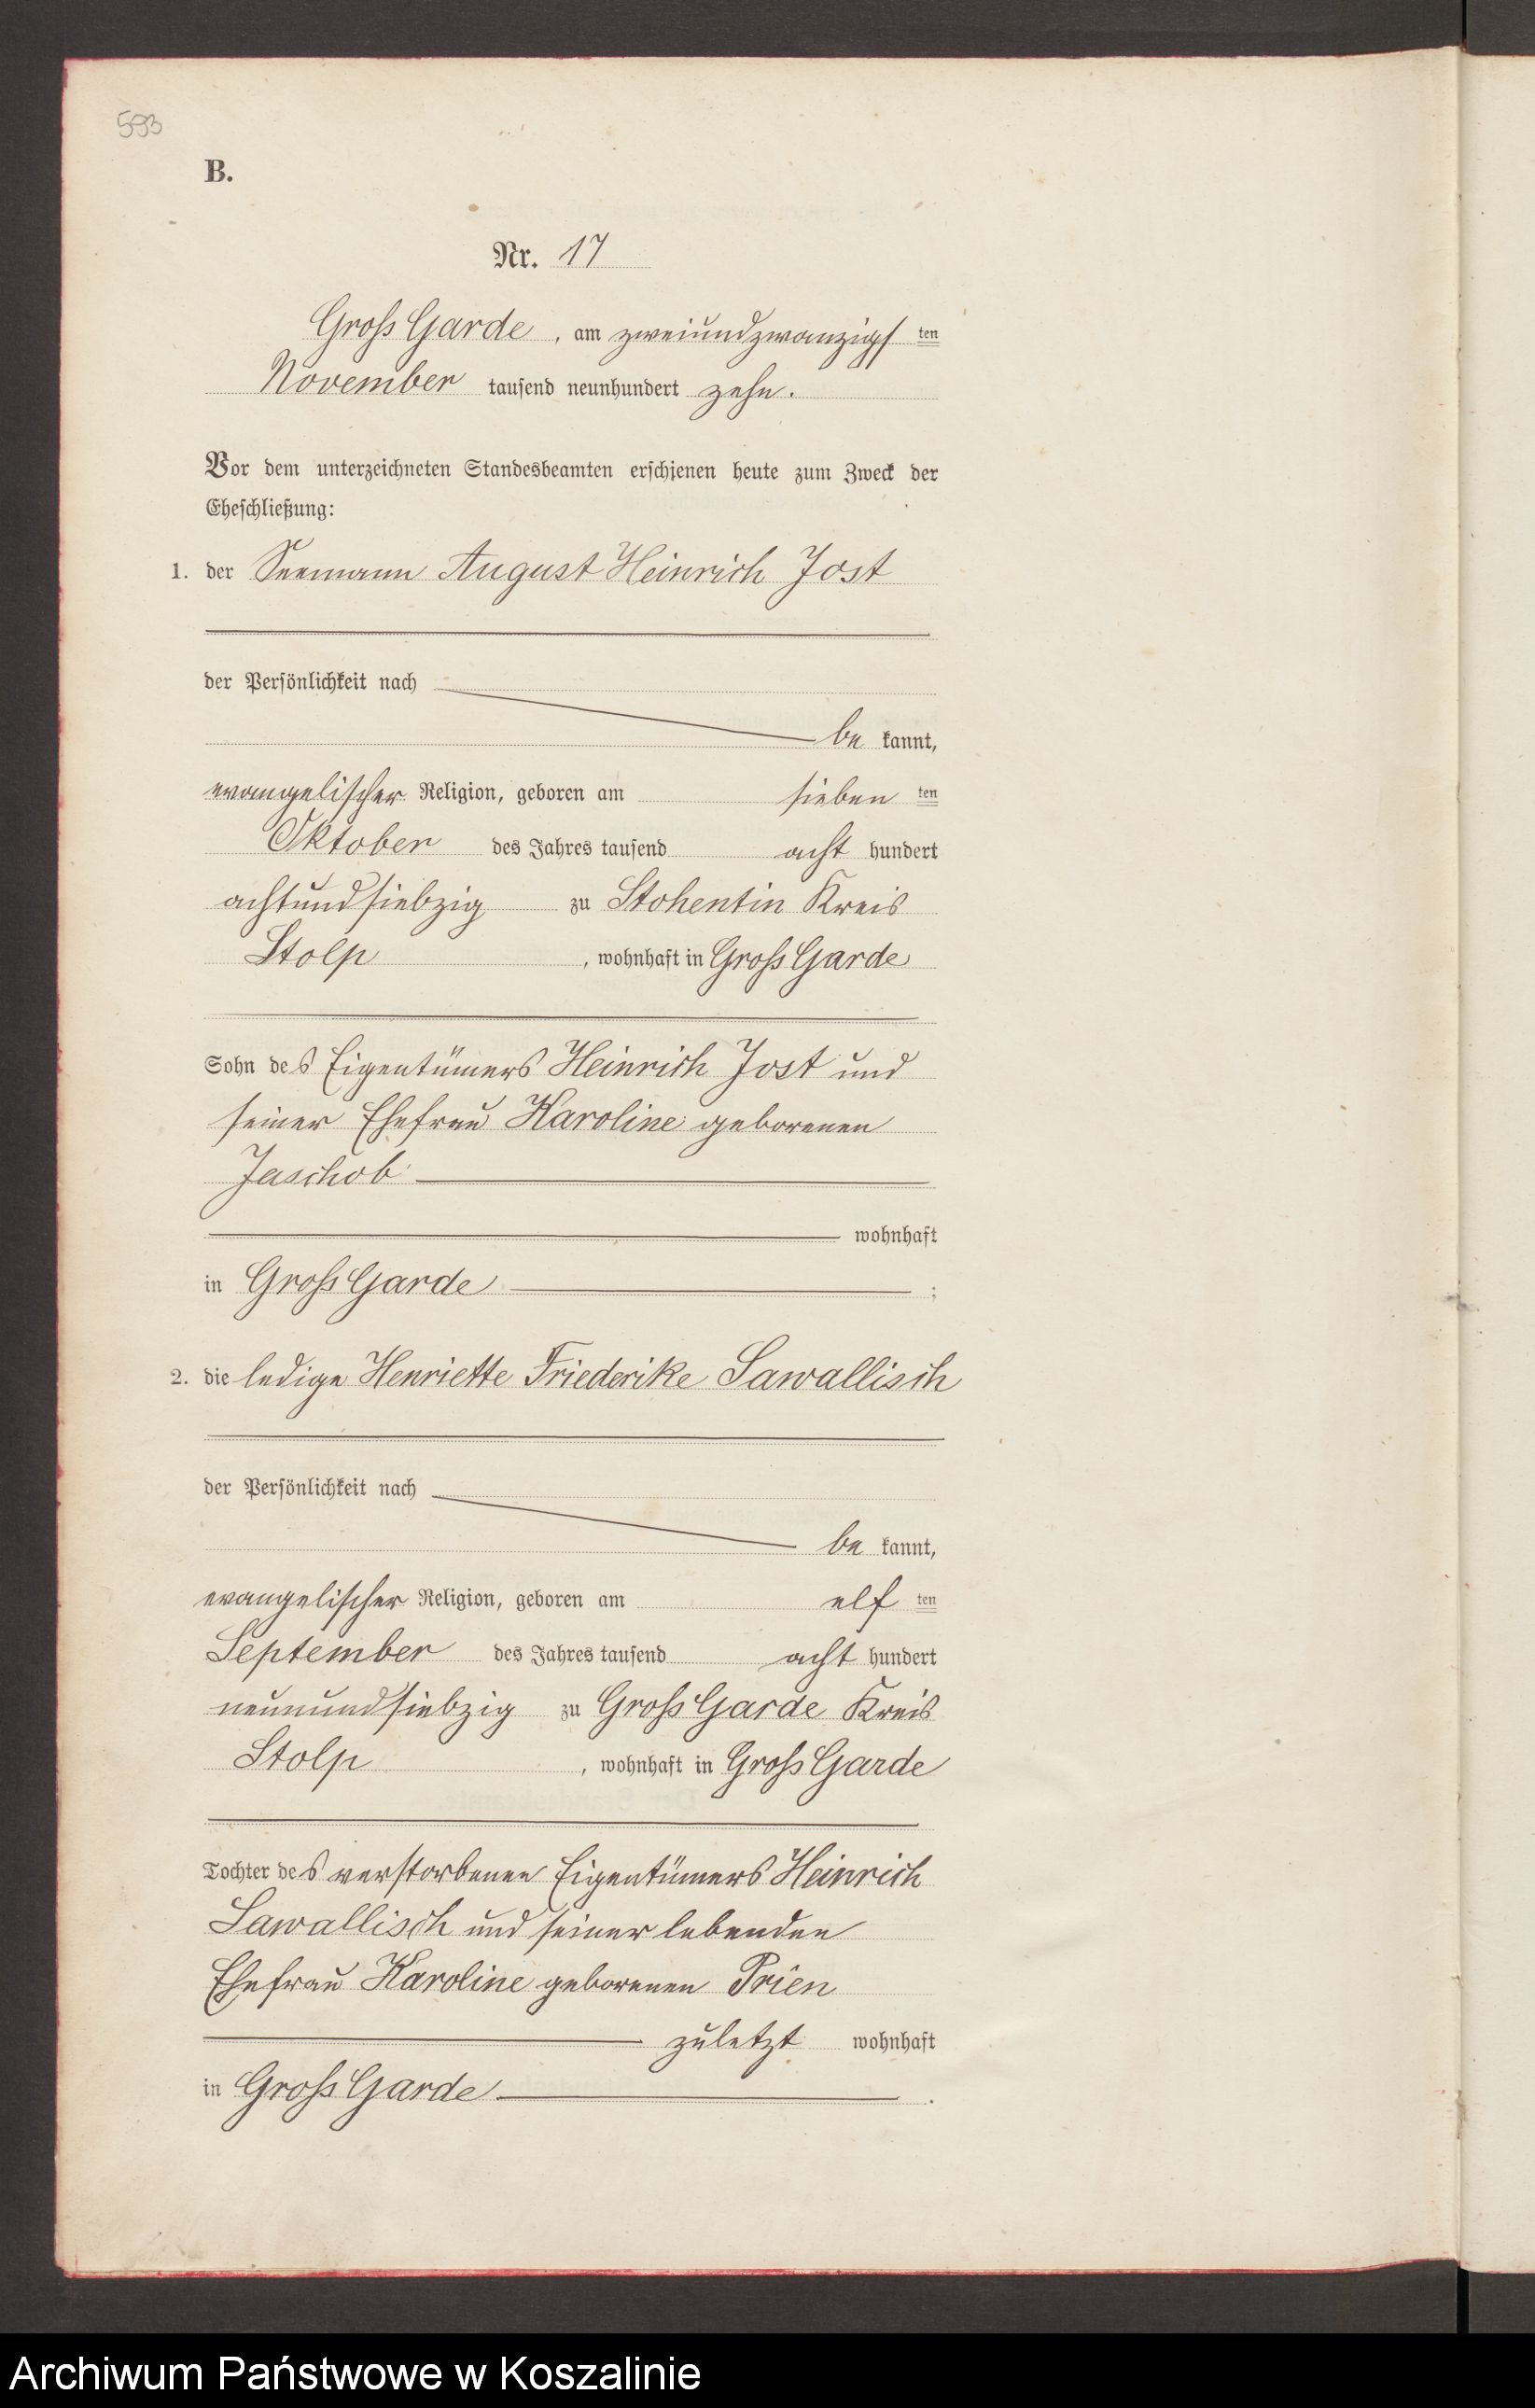 593
B.
Nr. 17
Gross Garde, am zweiundzwanzigs ten
November tausend neunhundert zehn.
Vor dem unterzeichneten Standesbeamten erschienen heute zum Zweck der
Eheschließung:
1. der Seemann August Heinrich Jost
der Persönlichkeit nach
be kannt,
evangelischer Religion, geboren am sieben ten
Oktober des Jahres tausend acht hundert
achtundsiebzig zu Stohentin Kreis
Stolp, wohnhaft in Gross Garde
Sohn des Eigentümers Heinrich Jost und
seiner Ehefrau Karoline geborenen
Jaschob
wohnhaft
in Gross Garde ;
2. die ledige Henriette Friederike Sawallisch
der Persönlichkeit nach
be kannt,
evangelischer Religion, geboren am elf ten
September des Jahres tausend acht hundert
neunundsiebzig zu Gross Garde Kreis
Stolp, wohnhaft in Gross Garde
Tochter des verstorbenen Eigentümers Heinrich
Sawallisch und seiner lebenden
Ehefrau Karoline geborenen Prien
zuletzt wohnhaft
in Gross Garde .
Archiwum Państwowe w Koszalinie